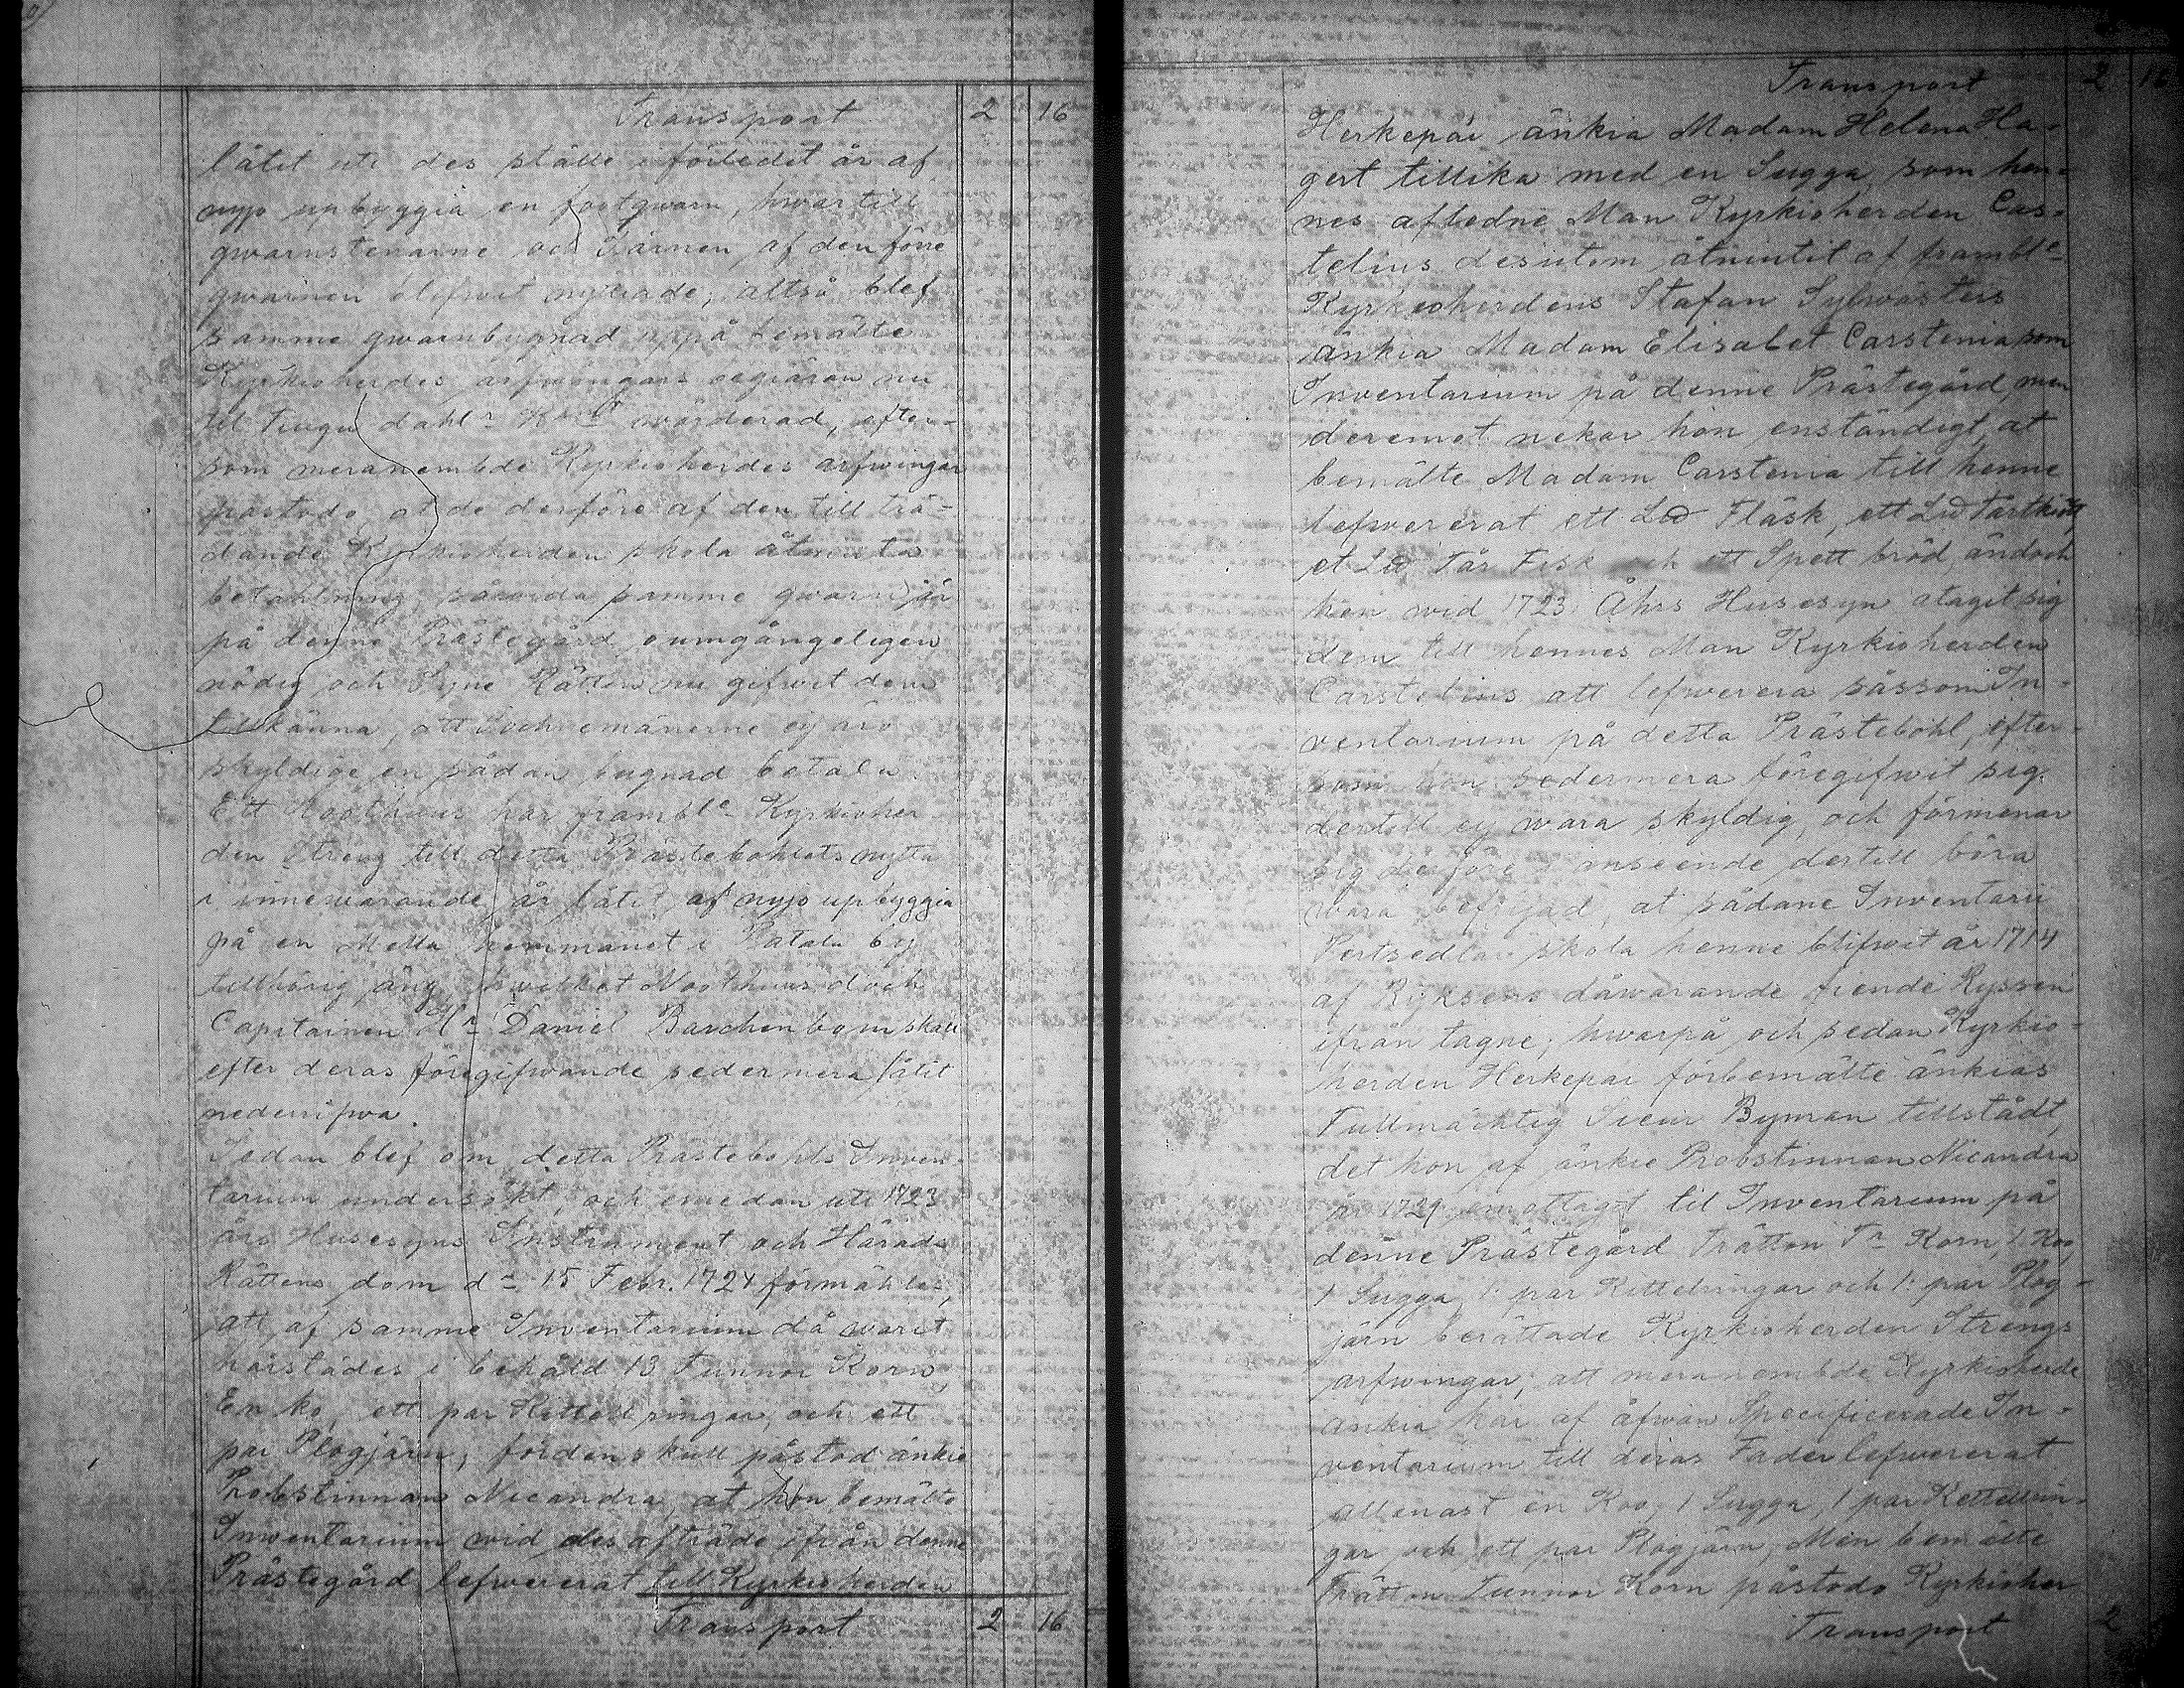 Transport 2 16
låtit uti des ställe i förledit år af
nyjo upbyggia en footqwarn, hwartill
qwarnstenarne och Järnen af den förre
qwarnen blefwit nyttiade; altså blef
samme qwarnbygnad uppå bemälte
Kyrkioherdes arfwingars begiäran nu
til tiugu dahlr Kmt wärderad, efter-
som meranembde Kyrkioherdes arfwingar
påstodo, at de derföre af den tillträ-
dande Kyrkioherden skola åtniuta
betahlning, såwida samme qwarn är
på denne Prästegård oumgängeligen
nödig och Syne Rätten nu gifwit dem
tillkänna, att Sochnemännerne ej äro
skyldige en sådan bygnad betala.
Ett Noothuus har framble Kyrkioher
den Streng till detta Prästebohlets nytta
i innewarande år låtit af nyjo upbyggia
på en Mella hemmanet i Patala by
tillhörig äng, hwilket Noothuus doch
Capitainen Hr Daniel Barchenbom skall
efter deras föregifwande sedermera låtit
nederrifwa.
Sedan blef om detta Prästebohls Inven-
tarium undersökt, och emedan uti 1723
års Husesyns Instrument och Härads
Rättens dom dn 15 Febr. 1724 förmähles,
att af samme Inventarium då warit
härstädes i behåld 13 Tunnor Korn,
En ko, ett par Kittelringar, och ett
par Plogjärn; fördenskull påstod änkie
Probstinnan Nicandra, at hon bemälte
Inwentarium wid des afträde ifrån denne
Prästegård lefwererat till Kyrkioherden
Transport 2 16
Transport 2 16
Herkepæi änkia Madam Helena Ha-
gert tillika med en Sugga, som hen-
nes aflednе Man Kyrkioherden Cas-
telius desutom åtniutit af framble
Kyrkeoherdens Stafan Sylwasters
änkia Madam Elisabet Carstenia som
Inventarium på denne Prästegård, men
deremot nekar hon enständigt, at
bemälte Madam Carstenia till henne
lefwererat ett L℔ Fläsk, ett L℔ Tårtkiött
et L℔ Tår Fisk och ett Spett bröd, ändoch
hon wid 1723 Åhrs Husesyn åtagit sig
dem till hennes Man Kyrkioherden
Carstelius att lefwerera såssom In-
ventarium på detta Prästebohl, efter-
som hon sedermera föregifwit sig
dertill ej wara skyldig, och förmenar
sig derföre i anseende dertill böra
wara befrijad, at sådane Inventarii
Pertsedlar skola henne blifwit år 1714
af Rijksens dåwarande fiende Ryssen
ifrån tagne; hwarpå och sedan Kyrkio-
herden Herkepæi förbemälte änkias
Fullmächtig Sieur Byman tillstådt,
det hon af änkie Probstinnan Nicandra
år 1729 emottagit til Inventarium på
denne Prästegård Trätton Tr Korn, 1 Koo,
1 Sugga, 1 par Kittelringar och 1 par Plog-
järn berättade Kyrkioherden Strengs
arfwingar, att meranembde Kyrkioherde
änkia har af åfwan Specificerade In-
ventarium till deras Fader lefwererat
allenast en Koo, 1 Sugga, 1 par Kettelrin-
gar och ett par Plogjärn, Men bemälte
Trätton Tunnor Korn påstodo Kyrkioher
Transport 2